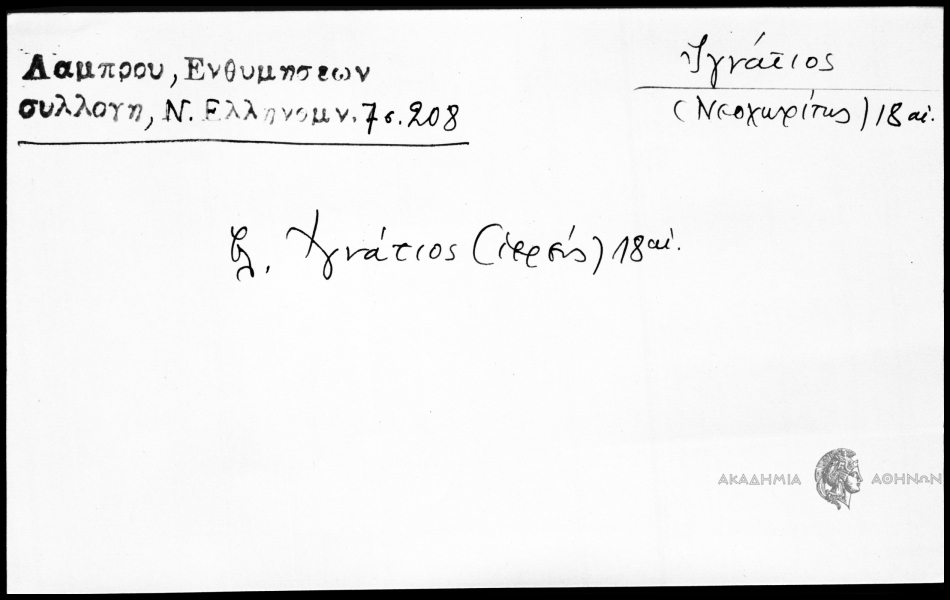 Λαμπρου, Ενθυμησεων
συλλογη, Ν. Ελληνομν. 7 σ. 208
Ἰγνάτιος
(Νεοχωρίτης) 18 αἰ.
βλ. Ἰγνάτιος (ἱερεύς) 18 αἰ.
ΑΚΑΔΗΜΙΑ ΑΘΗΝΩΝ